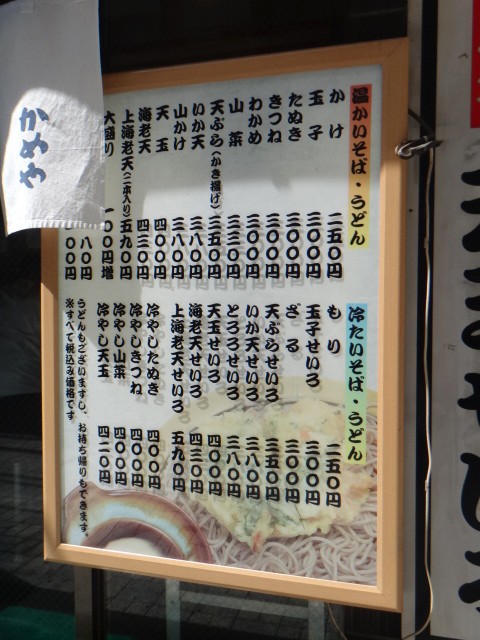 温かいそば・うどん
かけ 二五〇円
玉子 三〇〇円
たぬき 三〇〇円
きつね 三〇〇円
わかめ 三〇〇円
山菜 三三〇円
天ぷら(かき揚げ) 三五〇円
いか天 三八〇円
山かけ 三八〇円
天玉 四〇〇円
海老天 四三〇円
上海老天(二本入り) 五九〇円
大盛り 一〇〇円増
八〇円
〇〇円
冷たいそば・うどん
もり 二五〇円
玉子せいろ 三〇〇円
ざる 三〇〇円
天ぷらせいろ 三五〇円
いか天せいろ 三八〇円
とろろせいろ 三八〇円
天玉せいろ 四〇〇円
海老天せいろ 四三〇円
上海老天せいろ 五九〇円
冷やしたぬき 四〇〇円
冷やしきつね 四〇〇円
冷やし山菜 四〇〇円
冷やし天玉 四二〇円
うどんもございますし、お持ち帰りもできます。
※すべて税込み価格です。